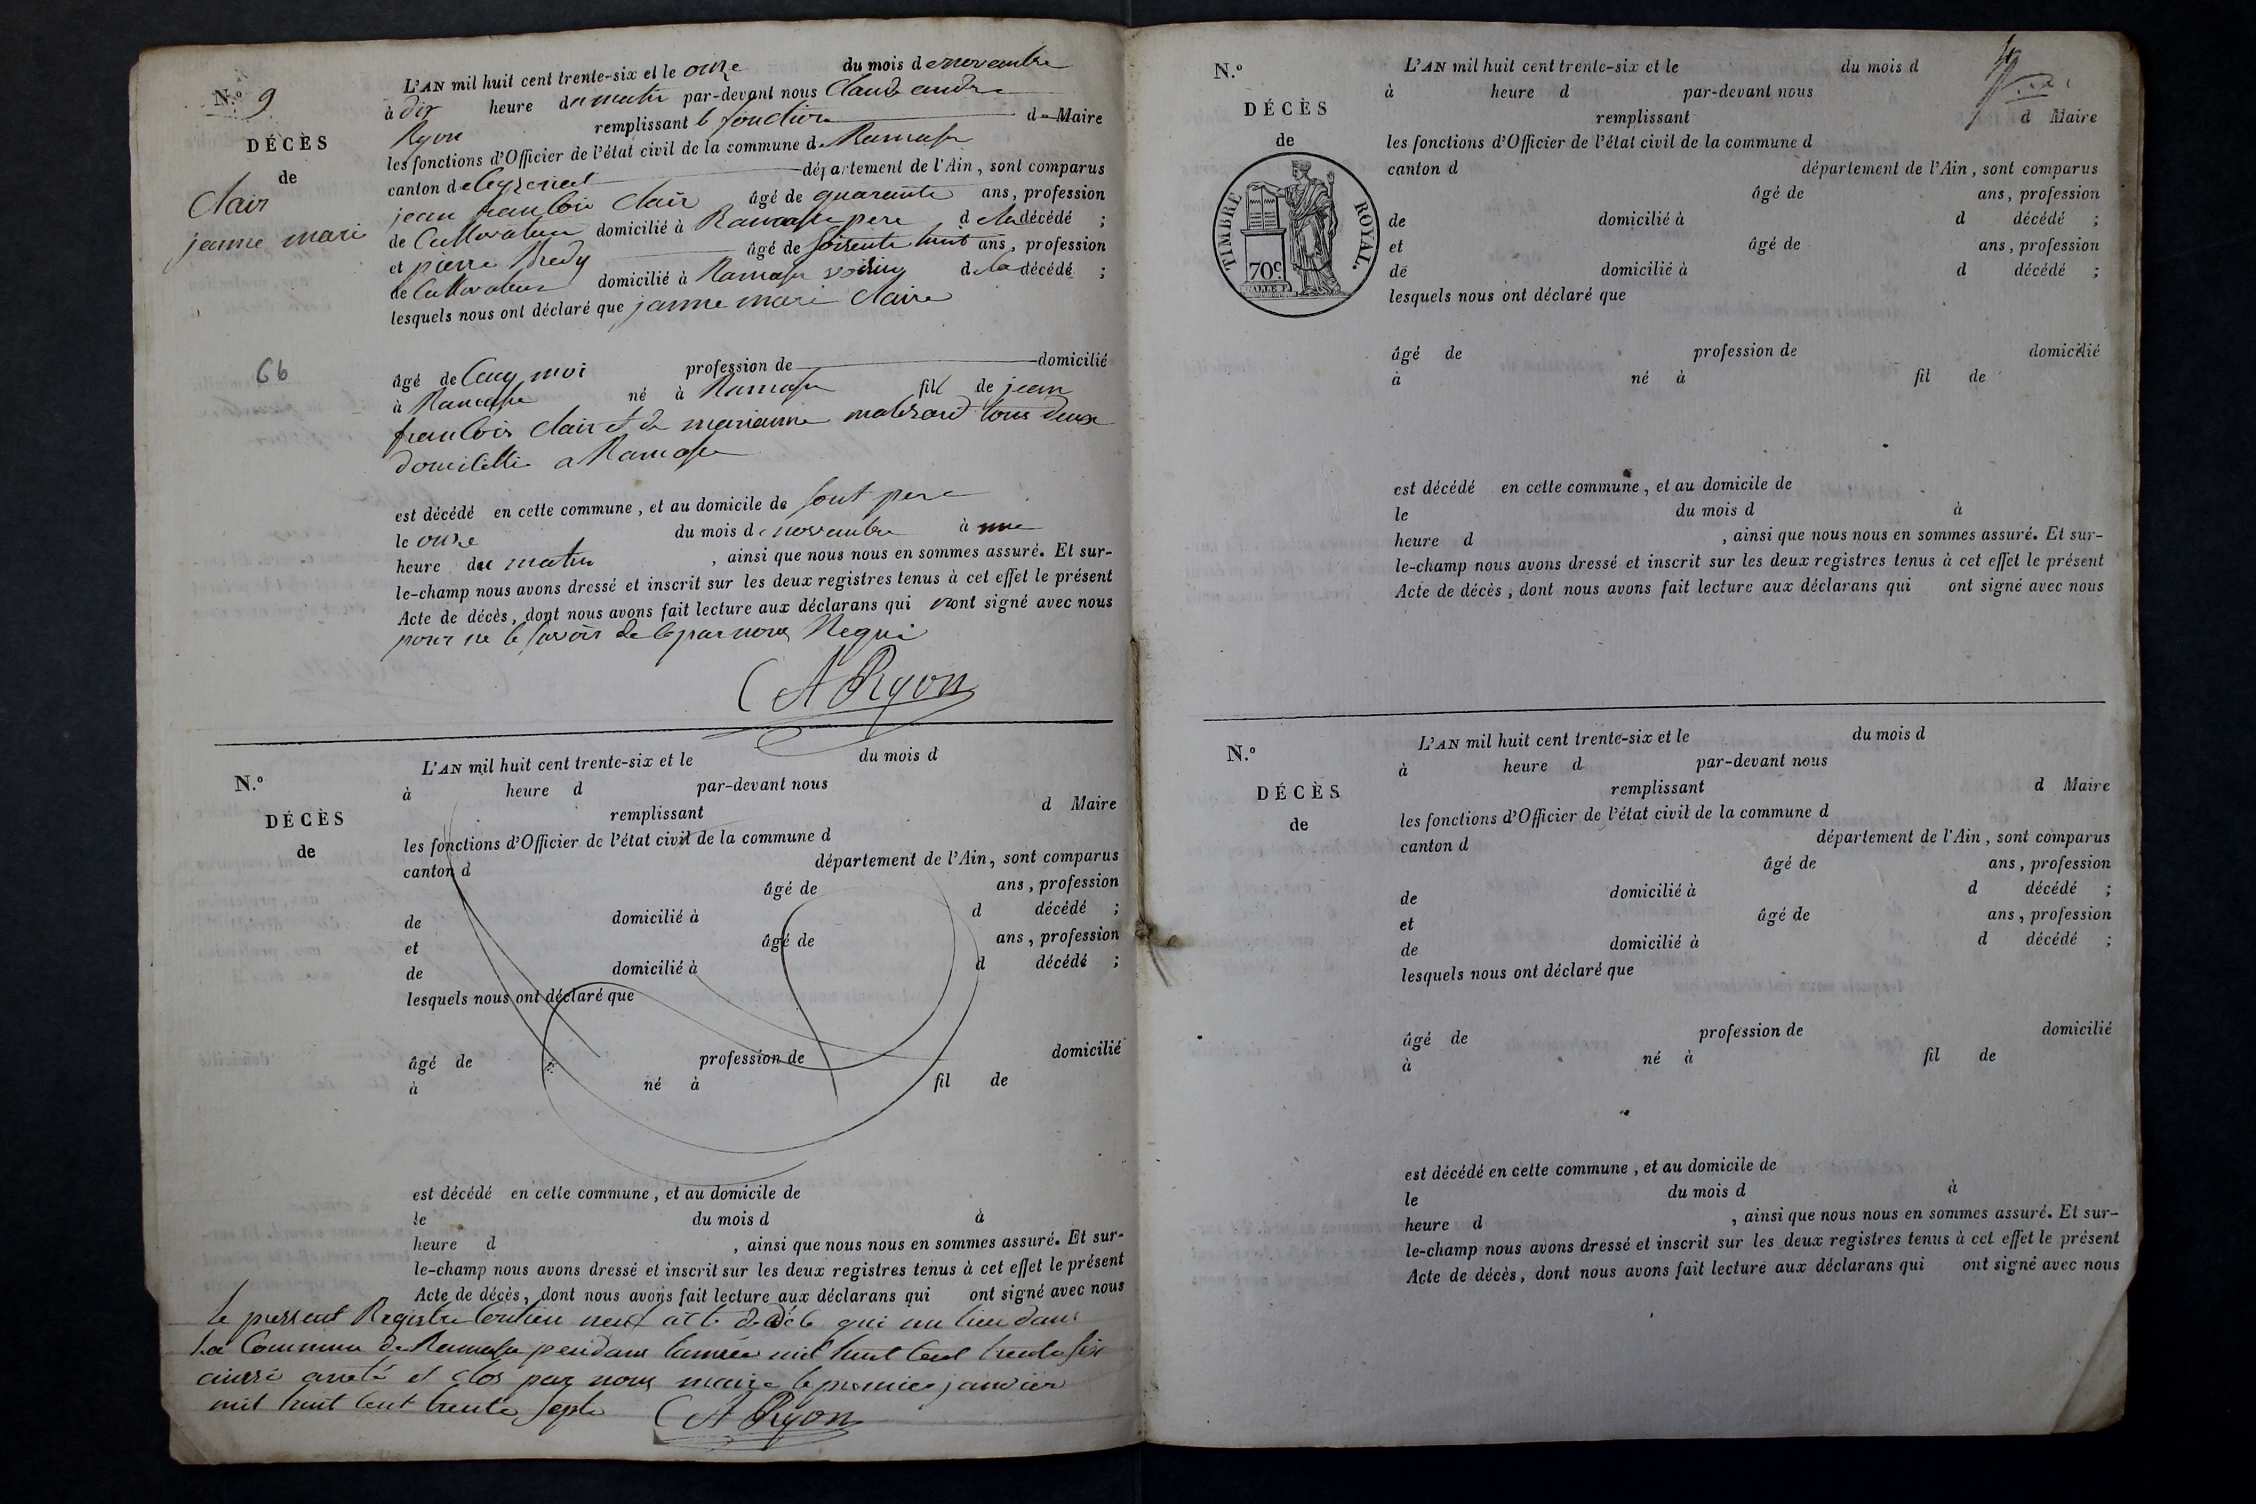 N.º 9
DÉCÈS
de
Clair
jeanne mari
66
L'AN mil huit cent trente-six et le onze du mois de novembre
à dix heure du matin par-devant nous Claude andre
Ryon remplissant le fonction de Maire
les fonctions d'Officier de l'état civil de la commune de Ramasse
canton de Ceyzeriat département de l'Ain, sont comparus
jean francois Clair âgé de quarente ans, profession
de Cultivateur domicilié à Ramasse pere de la décédé ;
et pierre âgé de soisente huit ans, profession
de Cultivateur domicilié à Ramasse voisin de la décédé ;
lesquels nous ont déclaré que jeanne mari Claire
âgé de Cinq moi profession de domicilié
à Ramasse né à Ramasse fil de jean
francois Clair et de marianne tous deux
domicillie a Ramasse
est décédé en cette commune, et au domicile de sont pere
le onze du mois de novembre à une
heure du matin , ainsi que nous nous en sommes assuré. Et sur-
le-champ nous avons dressé et inscrit sur les deux registres tenus à cet effet le présent
Acte de décès, dont nous avons fait lecture aux déclarans qui nont signé avec nous
pour ne le savoir de ce par nous Requi
CA Ryon
N.º
DÉCÈS
de
L'AN mil huit cent trente-six et le du mois d
à heure d par-devant nous
remplissant d Maire
les fonctions d'Officier de l'état civil de la commune d
canton d département de l'Ain, sont comparus
âgé de ans, profession
de domicilié à d décédé ;
et âgé de ans, profession
de domicilié à d décédé ;
lesquels nous ont déclaré que
âgé de profession de domicilié
à né à fil de
est décédé en cette commune, et au domicile de
le du mois d à
heure d , ainsi que nous nous en sommes assuré. Et sur-
le-champ nous avons dressé et inscrit sur les deux registres tenus à cet effet le présent
Acte de décès, dont nous avons fait lecture aux déclarans qui ont signé avec nous
Le present Registre Contien neuf acte de décè qui on lieu dans
La Commune de Ramasse pendant lannée mil huit Cent trente six
ainsi areté et clos par nous maire le premier janvier
mil huit Cent trente sept CA Ryon
N.º
DÉCÈS
de
TIMBRE ROYAL.
70c.
L'AN mil huit cent trente-six et le du mois d
à heure d par-devant nous
remplissant d Maire
les fonctions d'Officier de l'état civil de la commune d
canton d département de l'Ain, sont comparus
âgé de ans, profession
de domicilié à d décédé ;
et âgé de ans, profession
de domicilié à d décédé ;
lesquels nous ont déclaré que
âgé de profession de domicilié
à né à fil de
est décédé en cette commune, et au domicile de
le du mois d à
heure d , ainsi que nous nous en sommes assuré. Et sur-
le-champ nous avons dressé et inscrit sur les deux registres tenus à cet effet le présent
Acte de décès, dont nous avons fait lecture aux déclarans qui ont signé avec nous
N.º
DÉCÈS
de
L'AN mil huit cent trente-six et le du mois d
à heure d par-devant nous
remplissant d Maire
les fonctions d'Officier de l'état civil de la commune d
canton d département de l'Ain, sont comparus
âgé de ans, profession
de domicilié à d décédé ;
et âgé de ans, profession
de domicilié à d décédé ;
lesquels nous ont déclaré que
âgé de profession de domicilié
à né à fil de
est décédé en cette commune, et au domicile de
le du mois d à
heure d , ainsi que nous nous en sommes assuré. Et sur-
le-champ nous avons dressé et inscrit sur les deux registres tenus à cet effet le présent
Acte de décès, dont nous avons fait lecture aux déclarans qui ont signé avec nous